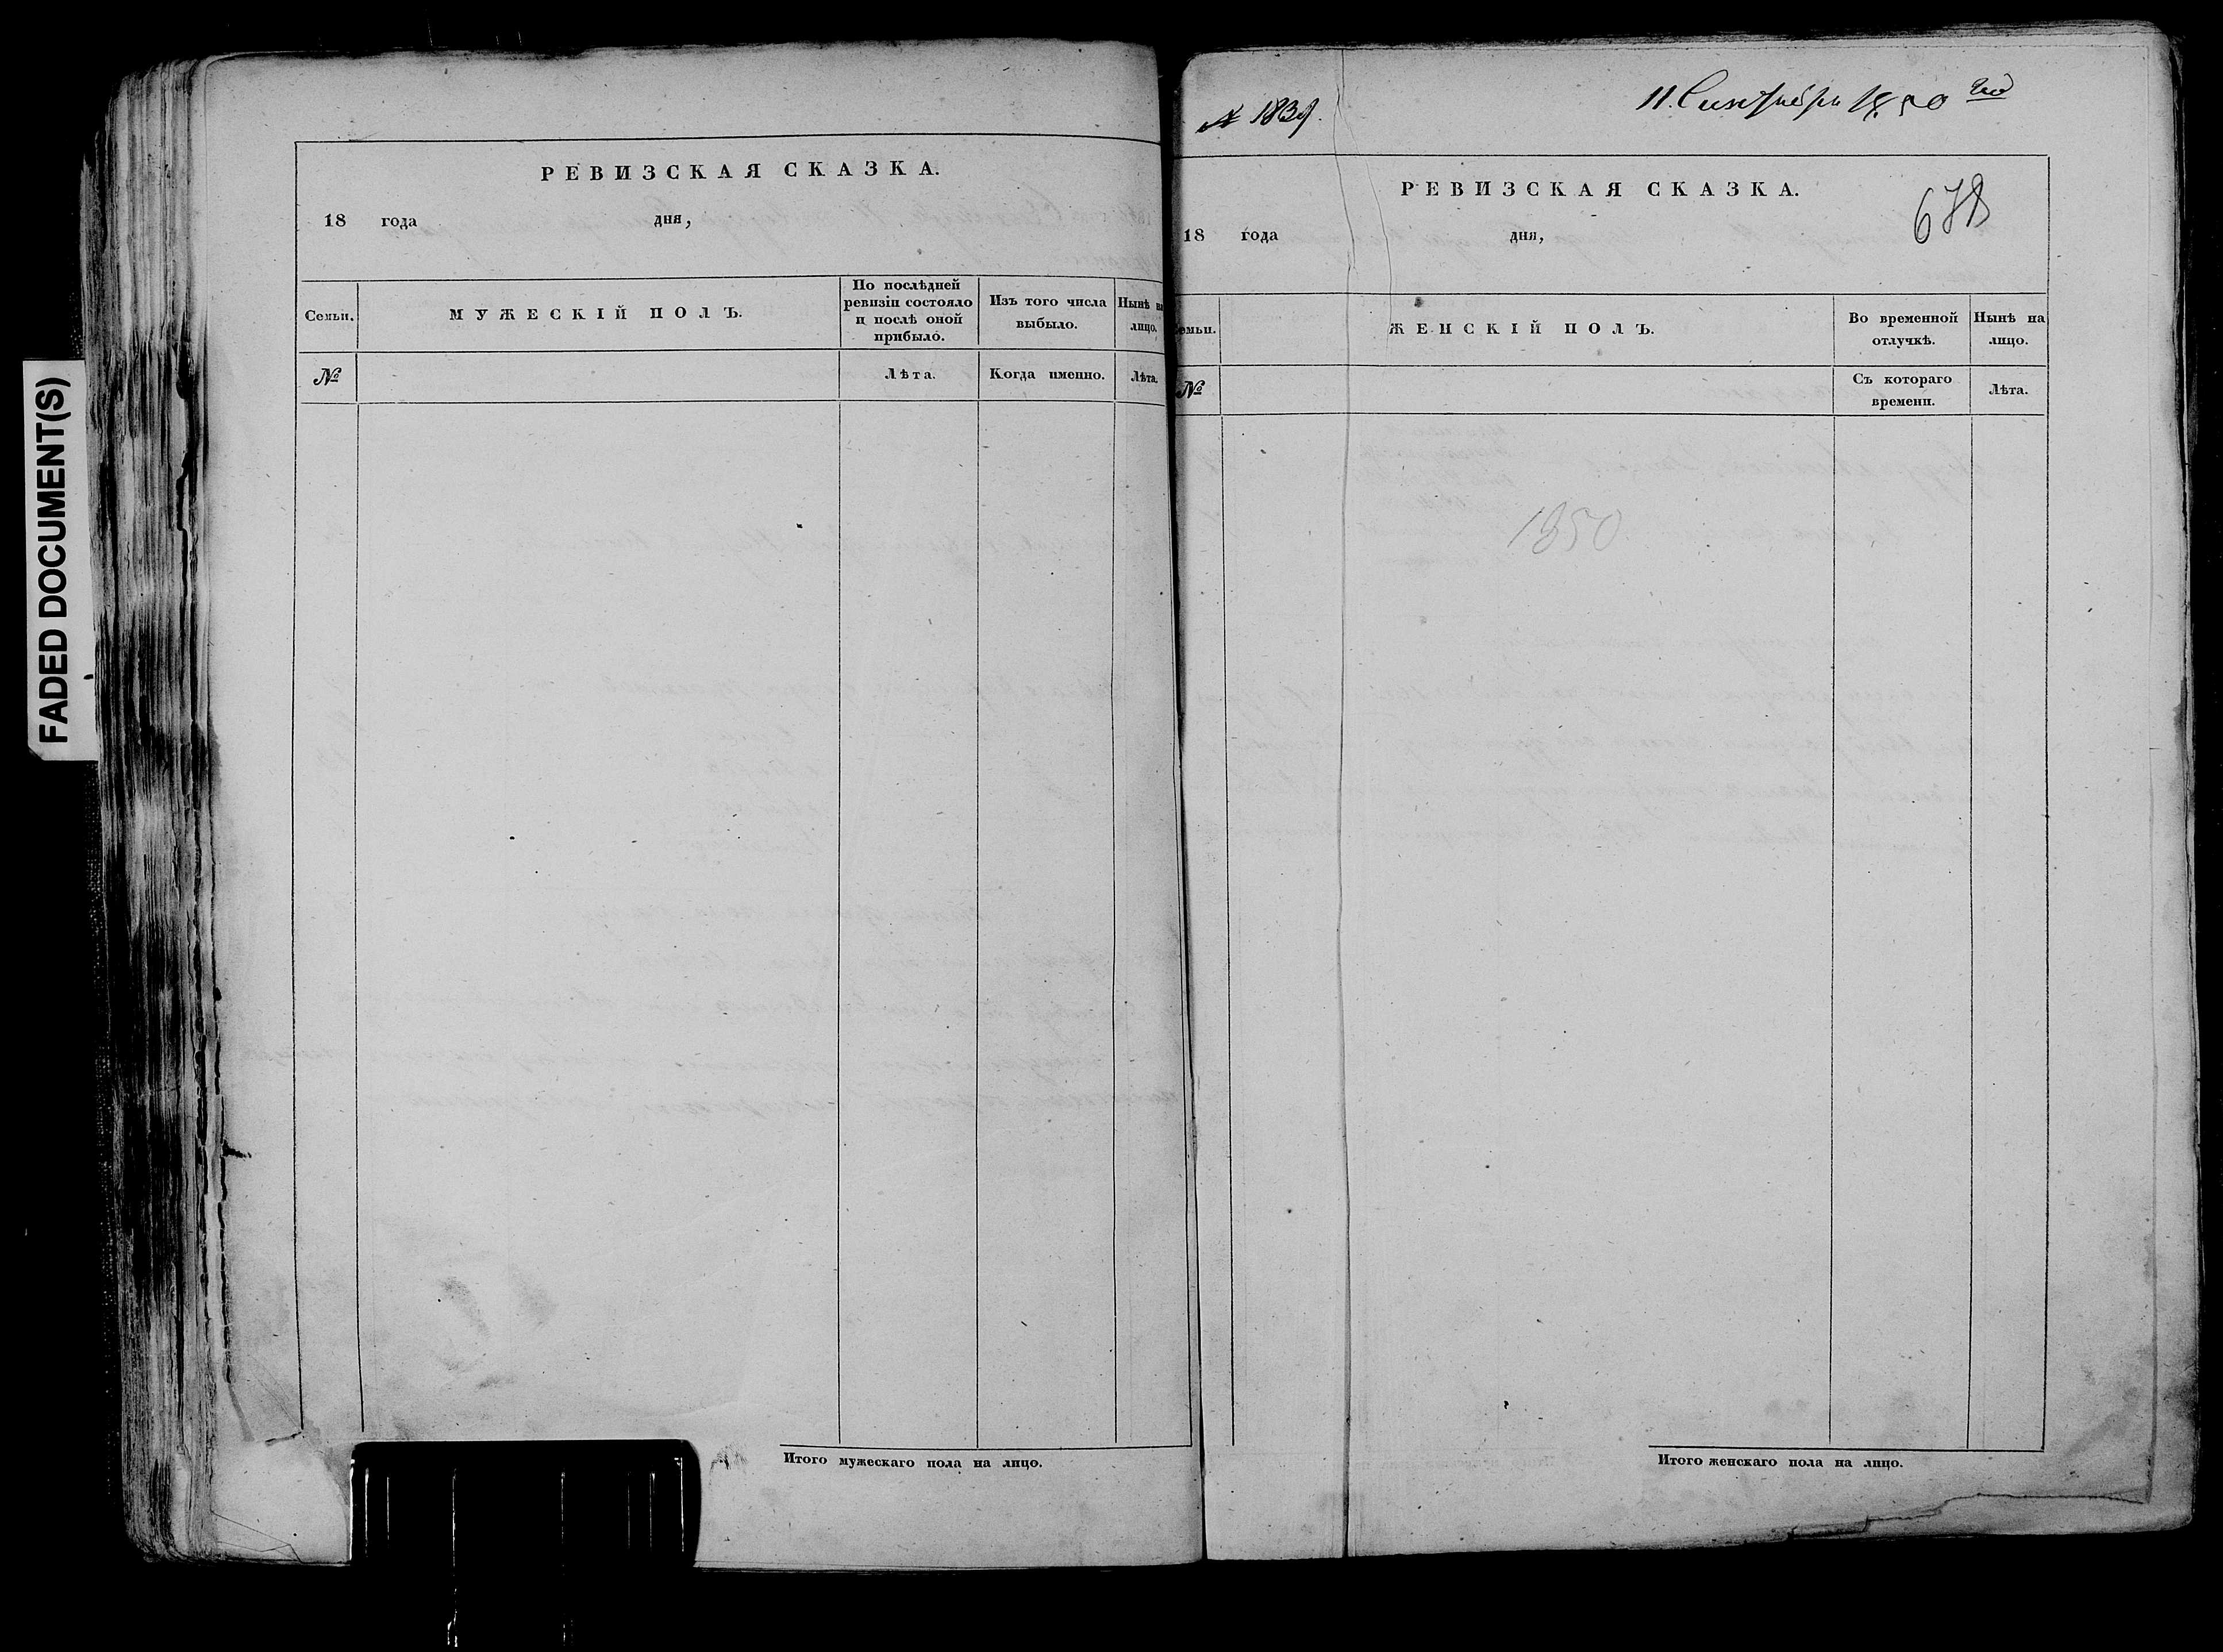 FADED DOCUMENT(S)
РЕВИЗСКАЯ СКАЗКА.
18 года дня,
Семьи.
МУЖЕСКІЙ ПОЛЪ.
По послѣдней
ревизіи состояло
и послѣ оной
прибыло.
Изъ того числа
выбыло.
Нынѣ на
лицо.
№
Лѣта.
Когда именно.
Лѣта.
Итого мужескаго пола на лицо.
№ 1839.
11. Сентября 1850 го
РЕВИЗСКАЯ СКАЗКА.
678
18 года дня,
Семьи.
ЖЕНСКІЙ ПОЛЪ.
Во временной
отлучкѣ.
Нынѣ на
лицо.
№
Съ котораго
времени.
Лѣта.
1850
Итого женскаго пола на лицо.